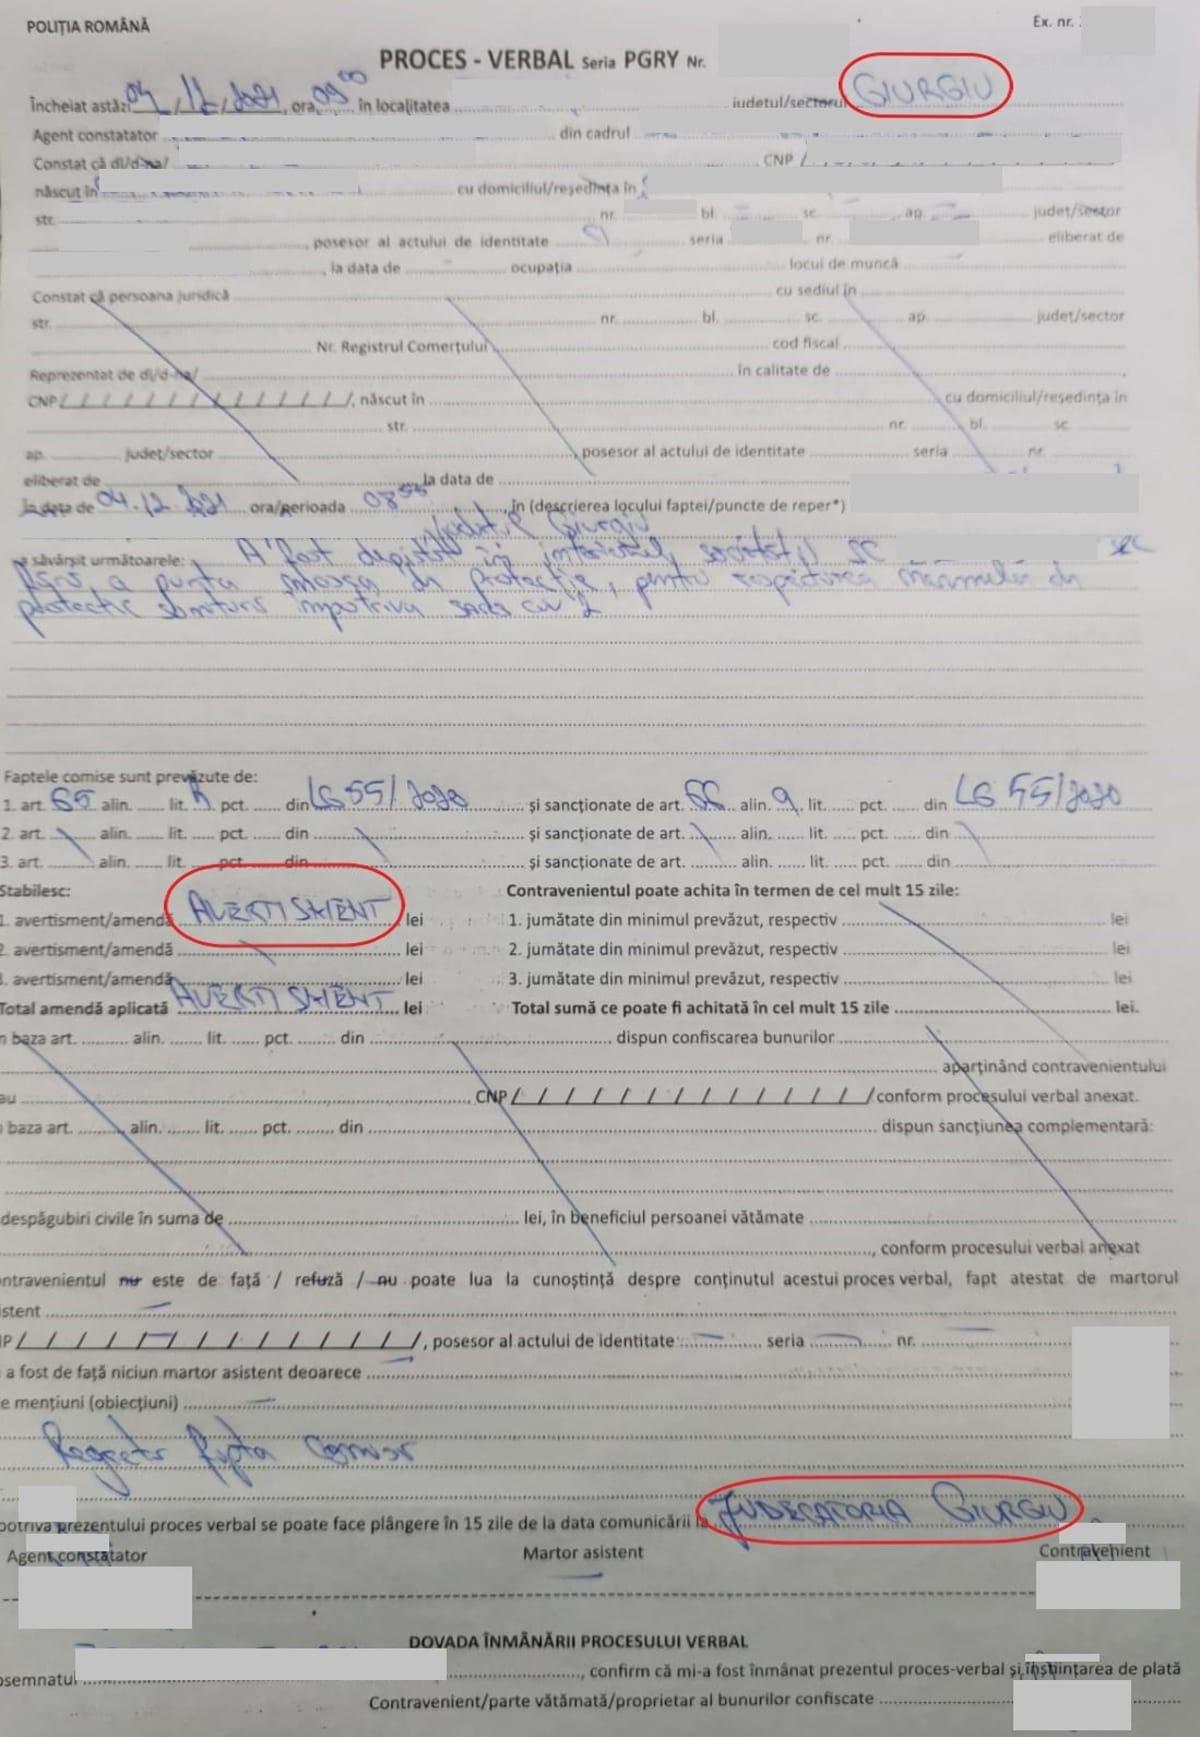 POLIȚIA ROMÂNĂ
Ex. nr.
PROCES - VERBAL Seria PGRY Nr.
Încheiat astăzi 04/12/2021, ora 09⁰⁰ în localitatea judetul/sectorul GIURGIU
Agent constatator din cadrul
Constat că dl/d-na/ CNP /
născut în cu domiciliul/reședința în
str. nr. bl. sc. ap. județ/sector
, posesor al actului de identitate seria nr. eliberat de
, la data de ocupația locul de muncă
Constat că persoana juridică cu sediul în
str. nr. bl. sc. ap. județ/sector
Nr. Registrul Comerțului cod fiscal
Reprezentat de dl/d-na/ în calitate de
CNP / / / / / / / / / / / / / /, născut în cu domiciliul/reședința în
str. nr. bl. sc
ap. județ/sector , posesor al actului de identitate seria nr.
eliberat de la data de
în data de 04.12.2021 ora/perioada 08⁵⁵, în (descrierea locului faptei/puncte de reper*)
județul Giurgiu
săvârșit următoarele: A fost depistat în interiorul societății SC
fără a purta masca de protecție, pentru
protecție împotriva
Faptele comise sunt prevăzute de:
1. art. 65 alin. lit. h pct. din LG 55/2020 și sancționate de art. 66 alin. lit. pct. din LG 55/2020
2. art. alin. lit. pct. din și sancționate de art. alin. lit. pct. din
3. art. alin. lit. pct. din și sancționate de art. alin. lit. pct. din
Stabilesc: Contravenientul poate achita în termen de cel mult 15 zile:
1. avertisment/amendă AVERTISMENT lei 1. jumătate din minimul prevăzut, respectiv lei
2. avertisment/amendă lei 2. jumătate din minimul prevăzut, respectiv lei
3. avertisment/amendă lei 3. jumătate din minimul prevăzut, respectiv lei
Total amendă aplicată AVERTISMENT lei Total sumă ce poate fi achitată în cel mult 15 zile lei.
n baza art. alin. lit. pct. din dispun confiscarea bunurilor
aparținând contravenientului
au CNP / / / / / / / / / / / / / / conform procesului verbal anexat.
baza art. alin. lit. pct. din dispun sancțiunea complementară:
despăgubiri civile în suma de lei, în beneficiul persoanei vătămate
, conform procesului verbal anexat
ontravenientul nu este de față / refuză / nu poate lua la cunoștință despre conținutul acestui proces verbal, fapt atestat de martorul
istent
NP / / / / / / / / / / / / / /, posesor al actului de identitate seria nr.
a fost de față niciun martor asistent deoarece
e mențiuni (obiecțiuni)
Regret fapta comisă
potriva prezentului proces verbal se poate face plângere în 15 zile de la data comunicării la JUDECATORIA GIURGIU
Agent constatator Martor asistent Contravenient
DOVADA ÎNMÂNĂRII PROCESULUI VERBAL
bsemnatul , confirm că mi-a fost înmânat prezentul proces-verbal și înștiințarea de plată
Contravenient/parte vătămată/proprietar al bunurilor confiscate